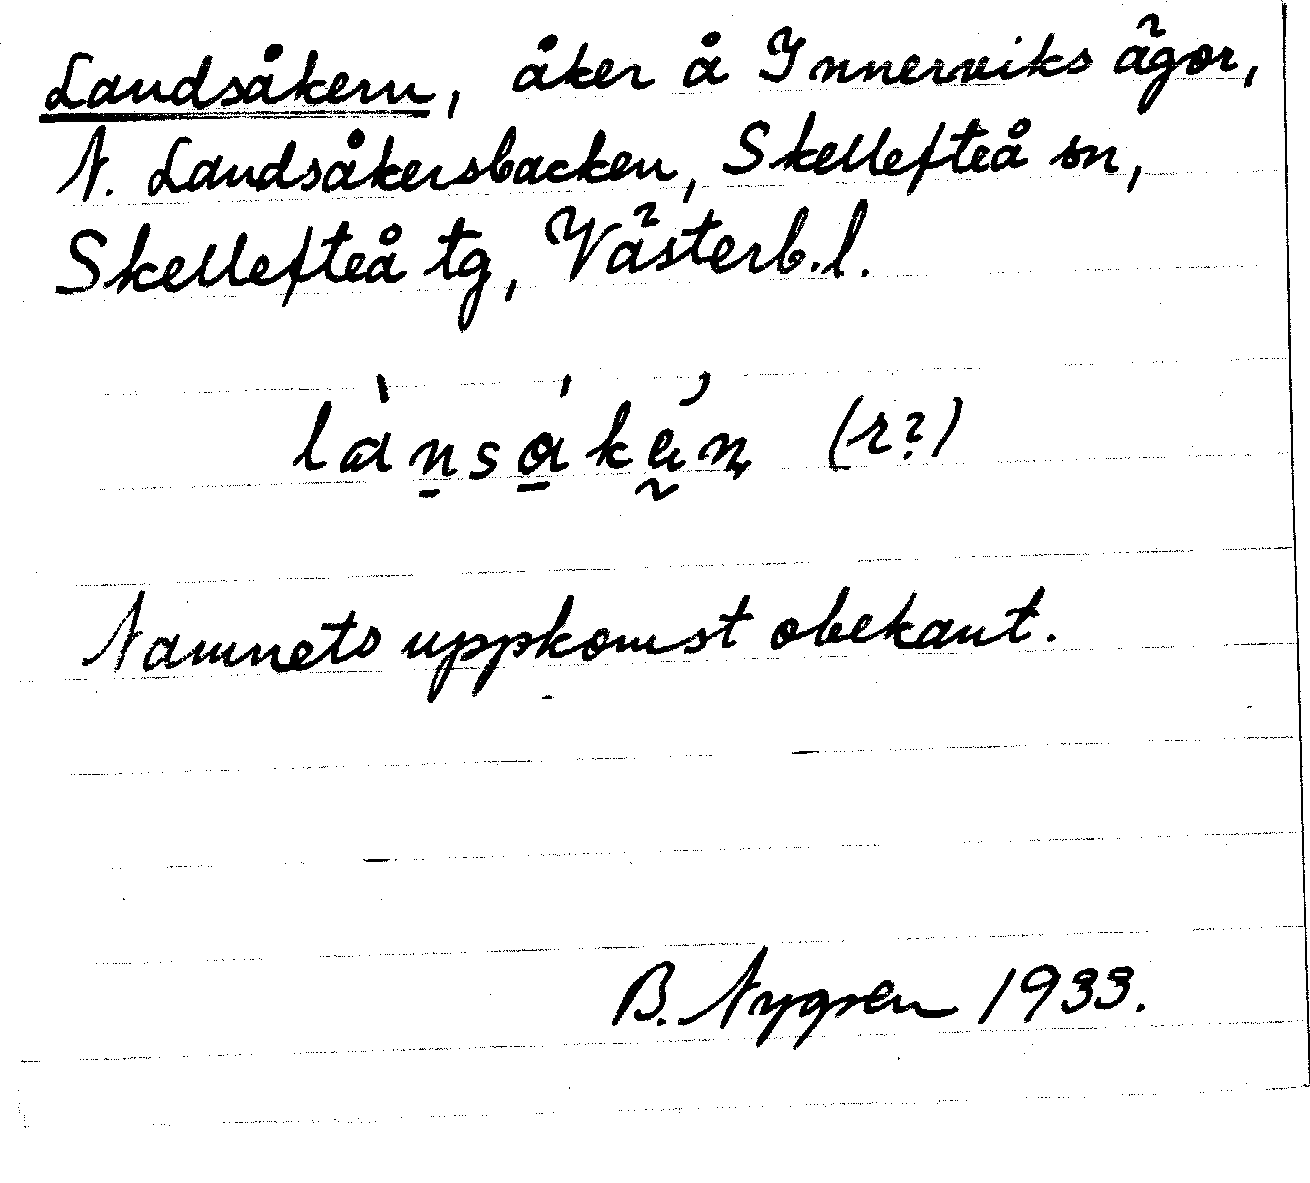 Landsåkern, åker å Innerviks ägor,
N. Landsåkersbacken, Skellefteå sn,
Skellefteå tg, Västerb.l.
lànsákän (r?)
Namnets uppkomst obekant.
B. Nygren 1933.